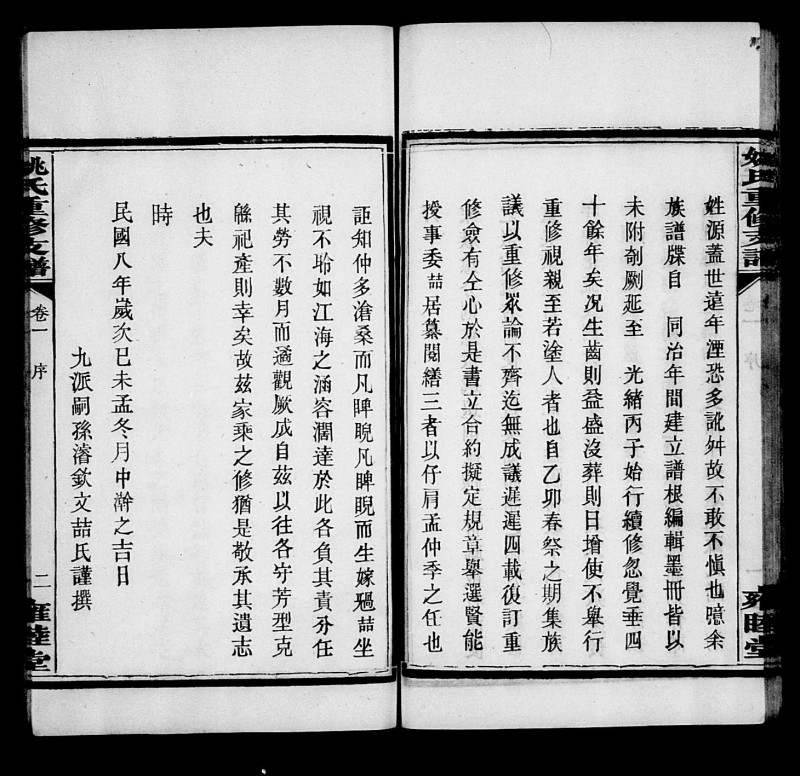 姓源蓋世遠年湮恐多訛舛故不敢不慎也臆余
族譜牒自　同治年間建立譜根編輯墨冊皆以
未附剞劂延至　光緒丙子始行續修忽覺垂四
十餘年矣况生齒則益盛沒葬則日增使不舉行
重修視親至若塗人者也自乙卯春祭之期集族
議以重修眾論不齊迄無成議遲遲四載復訂重
修僉有仝心於是書立合約擬定規章舉選賢能
授事委喆居纂閱繕三者以仔肩孟仲季之任也
詎知仲多滄桑而凡睥睨凡睥睨而生嫁禍喆坐
視不聆如江海之涵容濶達於此各負其責分任
其勞不數月而遹觀厥成自茲以往各守芳型克
緜祀產則幸矣故茲家乘之修猶是敬承其遺志
也夫
時
民國八年歲次已未孟冬月中澣之吉日
九派嗣孫濬欽文喆氏謹撰
姚氏重修支譜
卷一
序
二
雍睦堂
姚氏重修支譜
卷一
序
雍睦堂